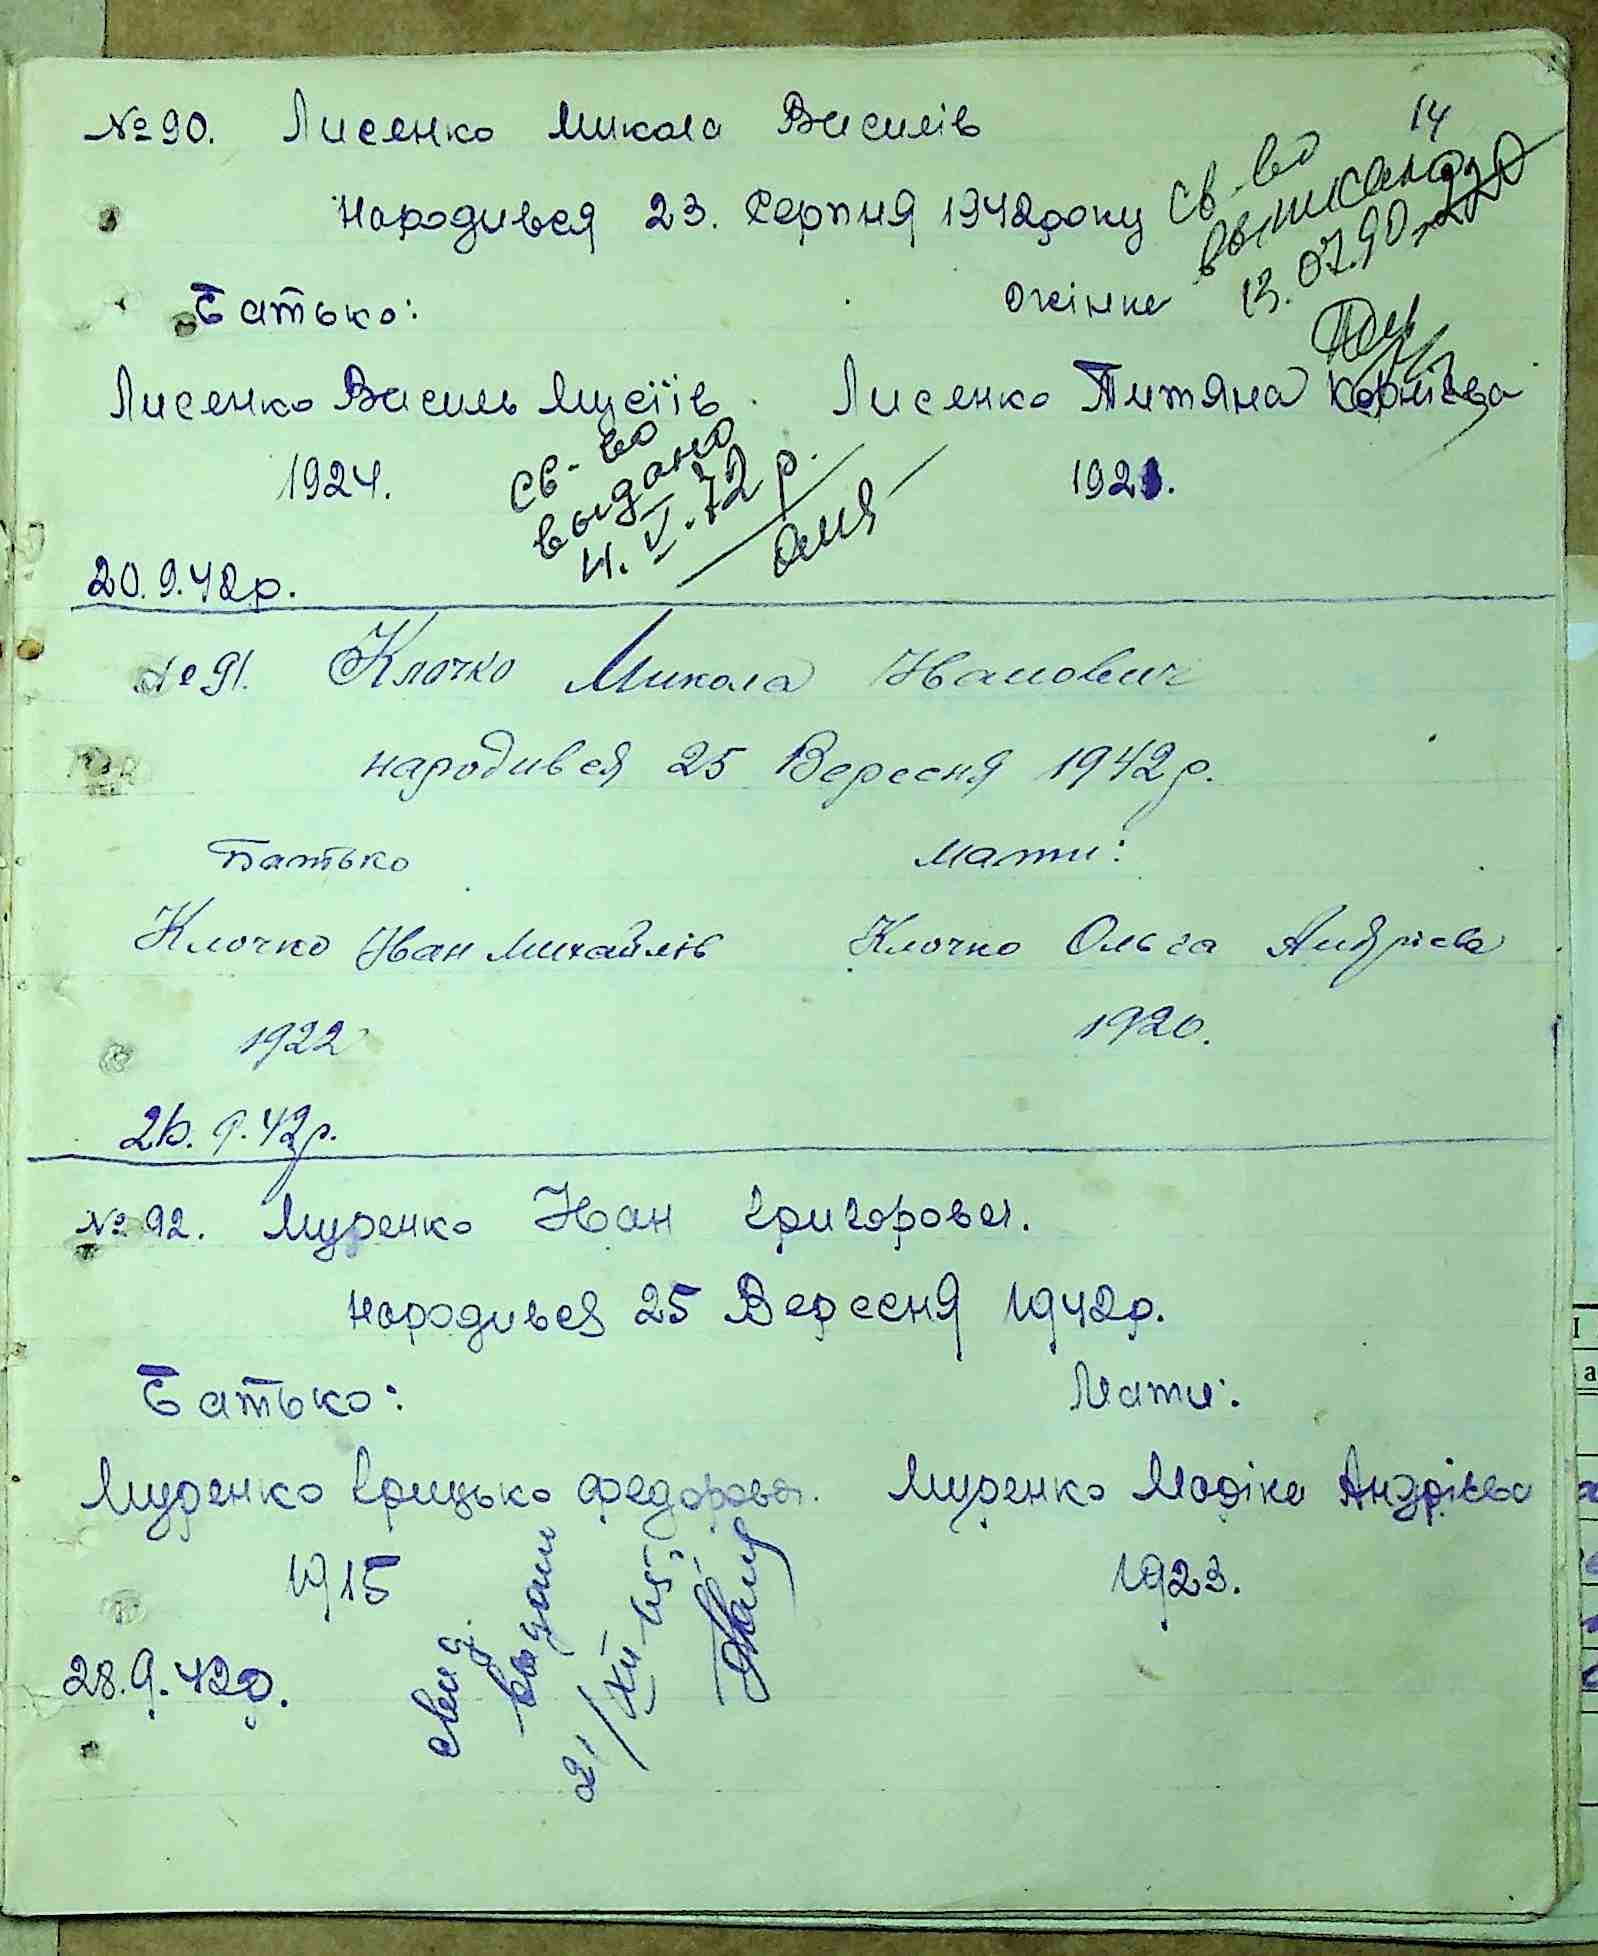 14
№ 90. Лисенко Микола Василів
Народився 23. Серпня 1942 року
св-во
выписано
13.07.90.
Батько:
Жінка
Лисенко Василь Мусіїв.
Лисенко Титяна Корнієва
1924.
1921.
св-во
выдано
11.V.72 р.
20.9.42р.
№ 91. Клочко Микола Иванович
народився 25 Вересня 1942 р.
Батько
мати:
Клочко Иван Михайлів
Клочко Ольга Андрієва
1922
1920.
26.9.42р.
№ 92. Муренко Иван Григоров.
народився 25 Вересня 1942р.
Батько:
Мати:
Муренко Грицько Федоров.
Муренко Марікa Андрієва
1915
1923.
свид.
выдан
21/XII
28.9.42р.